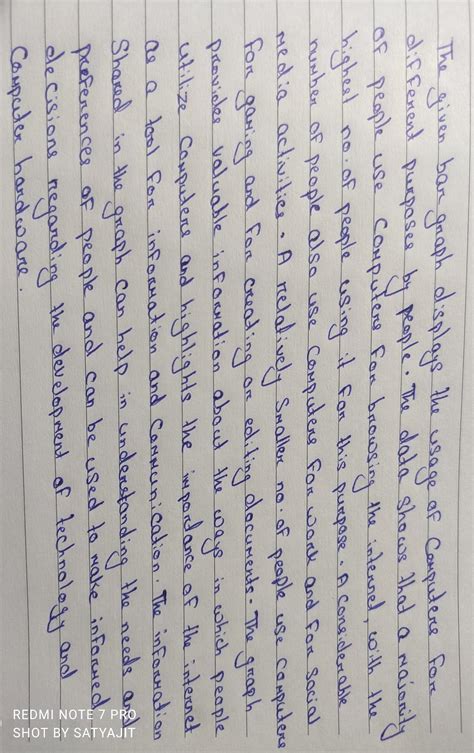 The given bar graph displays the usage of Computers for
different purposes by people. The data shows that a majority
of people use Computers for browsing the internet, with the
highest no. of people using it for this purpose. A Considerable
number of people also use Computers for work and for social
media activities. A relatively smaller no. of people use Computers
for gaming and for creating or editing documents. The graph
provides valuable information about the ways in which people
utilize Computers and highlights the importance of the internet
as a tool for information and Communication. The information
Shared in the graph can help in understanding the needs and
preferences of people and can be used to make informed
decisions regarding the development of technology and
Computer hardware.
REDMI NOTE 7 PRO
SHOT BY SATYAJIT